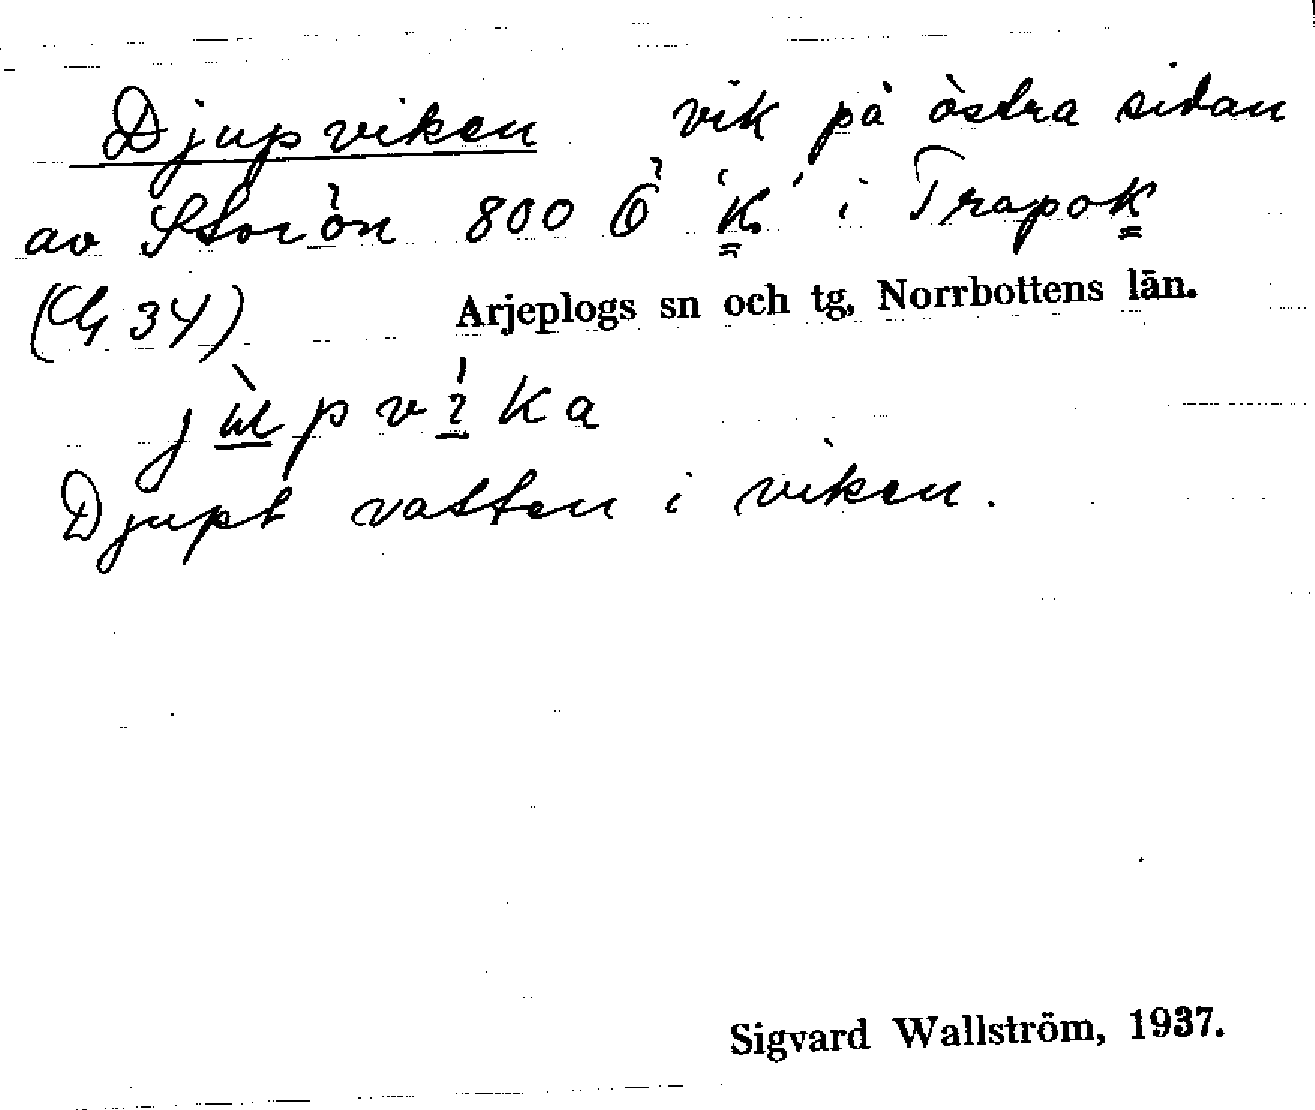 Djupviken vik på östra sidan
av Storön 800 Ö 'K.' i Trapok
(G 34) Arjeplogs sn och tg, Norrbottens län.
Djupt vatten i viken.
Sigvard Wallström, 1937.